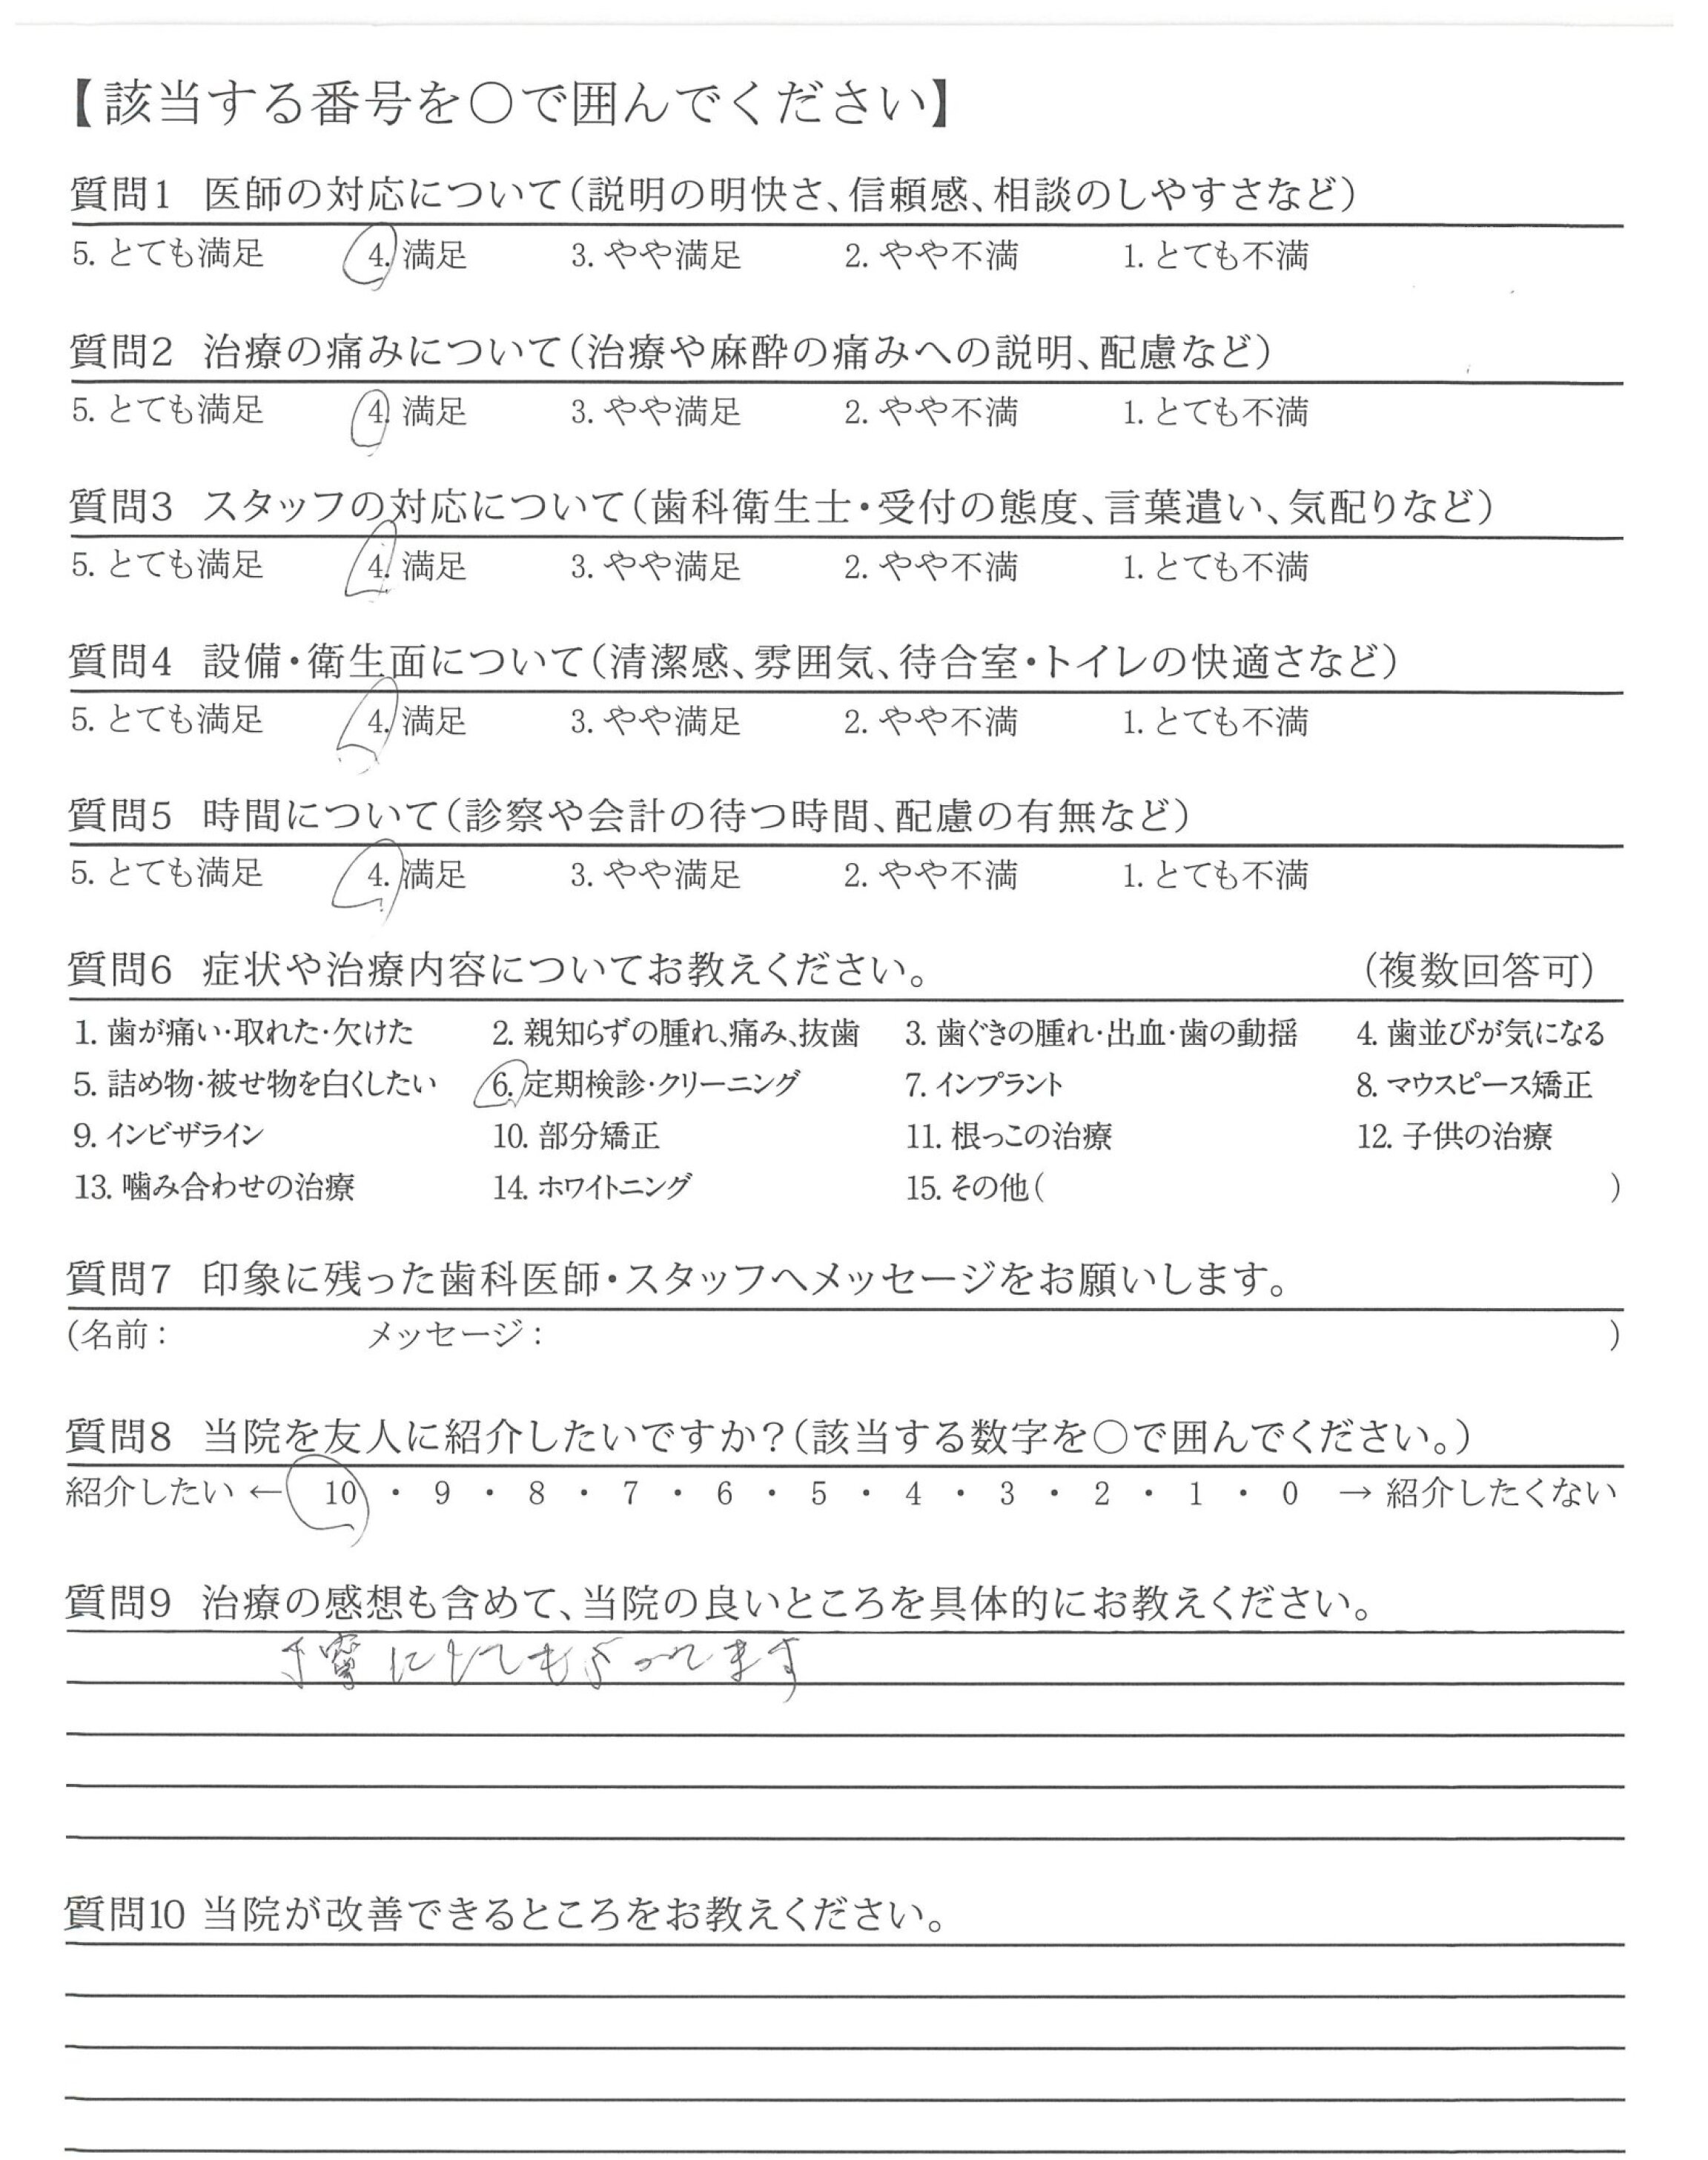 【該当する番号を○で囲んでください】
質問1 医師の対応について(説明の明快さ、信頼感、相談のしやすさなど)
5. とても満足 4. 満足 3. やや満足 2. やや不満 1. とても不満
質問2 治療の痛みについて(治療や麻酔の痛みへの説明、配慮など)
5. とても満足 4. 満足 3. やや満足 2. やや不満 1. とても不満
質問3 スタッフの対応について(歯科衛生士・受付の態度、言葉遣い、気配りなど)
5. とても満足 4. 満足 3. やや満足 2. やや不満 1. とても不満
質問4 設備・衛生面について(清潔感、雰囲気、待合室・トイレの快適さなど)
5. とても満足 4. 満足 3. やや満足 2. やや不満 1. とても不満
質問5 時間について(診察や会計の待つ時間、配慮の有無など)
5. とても満足 4. 満足 3. やや満足 2. やや不満 1. とても不満
質問6 症状や治療内容についてお教えください。 (複数回答可)
1. 歯が痛い・取れた・欠けた 2. 親知らずの腫れ、痛み、抜歯 3. 歯ぐきの腫れ・出血・歯の動揺 4. 歯並びが気になる
5. 詰め物・被せ物を白くしたい 6. 定期検診・クリーニング 7. インプラント 8. マウスピース矯正
9. インビザライン 10. 部分矯正 11. 根っこの治療 12. 子供の治療
13. 噛み合わせの治療 14. ホワイトニング 15. その他( )
質問7 印象に残った歯科医師・スタッフへメッセージをお願いします。
(名前: メッセージ: )
質問8 当院を友人に紹介したいですか?(該当する数字を○で囲んでください。)
紹介したい ← 10 ・ 9 ・ 8 ・ 7 ・ 6 ・ 5 ・ 4 ・ 3 ・ 2 ・ 1 ・ 0 → 紹介したくない
質問9 治療の感想も含めて、当院の良いところを具体的にお教えください。
質問10 当院が改善できるところをお教えください。